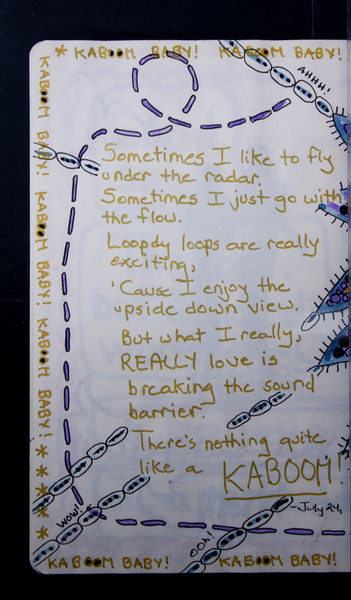 * KABOOM BABY! KABOOM BABY!
AHHH!
KABOOM BABY! KABOOM BABY! KABOOM BABY! * * * * *
Sometimes I like to fly
under the radar.
Sometimes I just go with
the flow.
Loopdy loops are really
exciting,
'Cause I enjoy the
upside down view.
But what I really,
REALLY love is
breaking the sound
barrier.
There's nothing quite
like a KABOOM!
-July 24,
WOW!
OOH!
KABOOM BABY! KABOOM BABY!